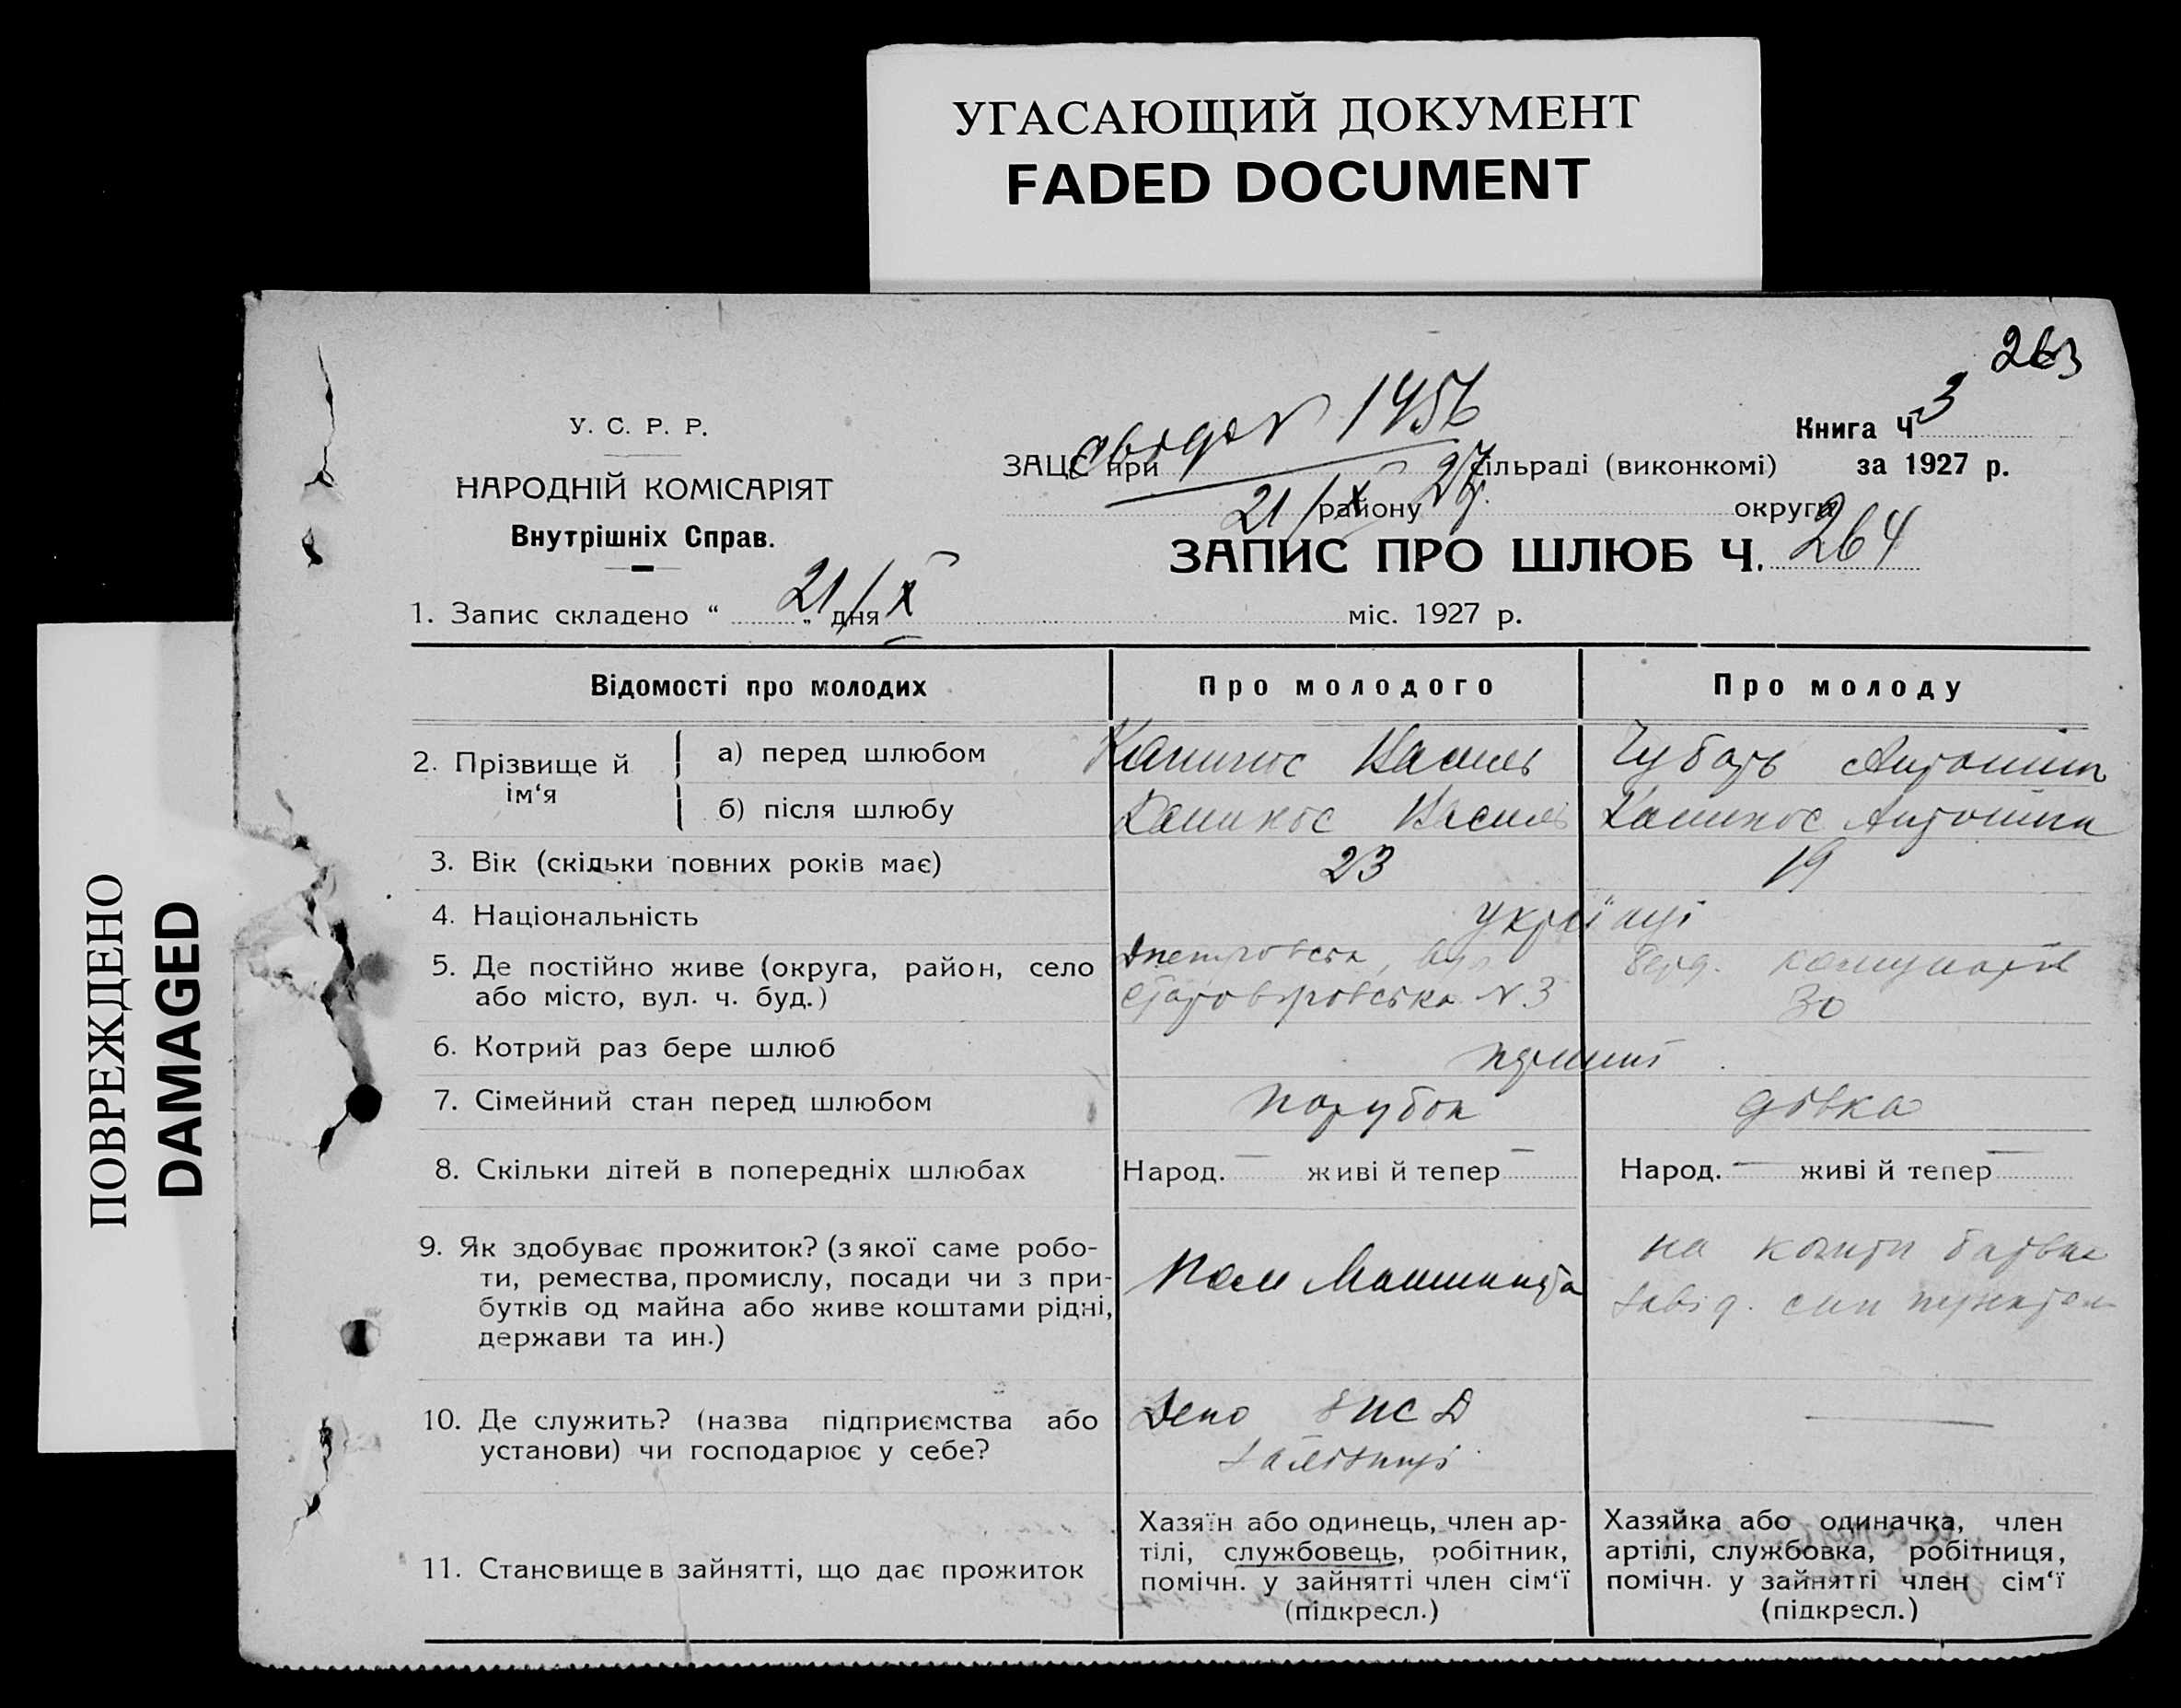 УГАСАЮЩИЙ ДОКУМЕНТ
FADED DOCUMENT
ПОВРЕЖДЕНО
DAMAGED
263
У. С. Р. Р.
НАРОДНІЙ КОМІСАРІЯТ
Внутрішніх Справ.
1456
Книга Ч 3
ЗАЦС при сільраді (виконкомі) за 1927 р.
21/X 27 району округи
ЗАПИС ПРО ШЛЮБ Ч. 264
1. Запис складено “ 21/X „ дня міс. 1927 р.
Відомості про молодих Про молодого Про молоду
2. Прізвище й ім‘я
а) перед шлюбом Василь Чубарь Антоніна
б) після шлюбу Василь Антоніна
3. Вік (скільки повних років має) 23 19
4. Національність українці
5. Де постійно живе (округа, район, село
або місто, вул. ч. буд.) N 3 30
6. Котрий раз бере шлюб перший
7. Сімейний стан перед шлюбом парубок дівка
8. Скільки дітей в попередніх шлюбах Народ. — живі й тепер — Народ. — живі й тепер —
9. Як здобуває прожиток? (з якої саме робо-
ти, ремества, промислу, посади чи з при-
бутків од майна або живе коштами рідні,
держави та ин.)
Пом Машиніста
на кошти батька
10. Де служить? (назва підприємства або
установи) чи господарює у себе?
Депо
залізниці
—
11. Становище в зайнятті, що дає прожиток
Хазяїн або одинець, член ар-
тілі, службовець, робітник,
помічн. у зайнятті член сім‘ї
(підкресл.)
Хазяйка або одиначка, член
артілі, службовка, робітниця,
помічн. у зайнятті член сім‘ї
(підкресл.)